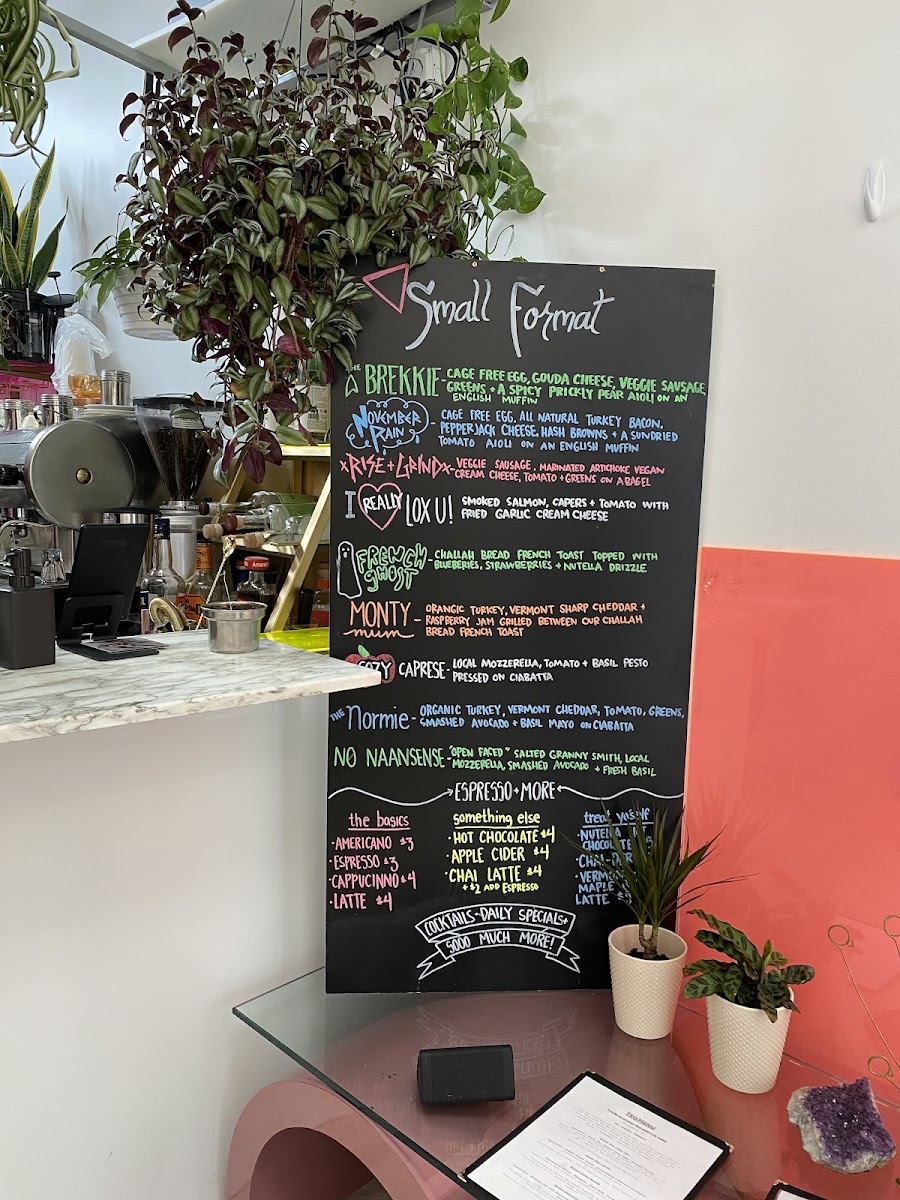 Small Format
THE BREKKIE - CAGE FREE EGG, GOUDA CHEESE, VEGGIE SAUSAGE,
GREENS + A SPICY PRICKLY PEAR AIOLI ON AN
ENGLISH MUFFIN
NOVEMBER RAIN - CAGE FREE EGG, ALL NATURAL TURKEY BACON,
PEPPERJACK CHEESE, HASH BROWNS + A SUNDRIED
TOMATO AIOLI ON AN ENGLISH MUFFIN
xRISE + GRINDx - VEGGIE SAUSAGE, MARINATED ARTICHOKE VEGAN
CREAM CHEESE, TOMATO + GREENS ON A BAGEL
I REALLY LOX U! SMOKED SALMON, CAPERS + TOMATO WITH
FRIED GARLIC CREAM CHEESE
FRENCH GHOST - CHALLAH BREAD FRENCH TOAST TOPPED WITH
BLUEBERIES, STRAWBERRIES + NUTELLA DRIZZLE
MONTY mum - ORANGIC TURKEY, VERMONT SHARP CHEDDAR +
RASPBERRY JAM GRILLED BETWEEN OUR CHALLAH
BREAD FRENCH TOAST
COZY CAPRESE - LOCAL MOZZERELLA, TOMATO + BASIL PESTO
PRESSED ON CIABATTA
THE Normie - ORGANIC TURKEY, VERMONT CHEDDAR, TOMATO, GREENS,
SMASHED AVOCADO + BASIL MAYO ON CIABATTA
NO NAANSENSE - "OPEN FACED" SALTED GRANNY SMITH, LOCAL
MOZZERELLA, SMASHED AVOCADO + FRESH BASIL
ESPRESSO + MORE
the basics
· AMERICANO $3
· ESPRESSO $3
· CAPPUCINNO $4
· LATTE $4
something else
· HOT CHOCOLATE $4
· APPLE CIDER $4
· CHAI LATTE $4
+ $2 ADD ESPRESSO
treat yoself
· NUTELLA
CHOCOLATE
· CHAI-DER
· VERMONT
MAPLE
LATTE
COCKTAILS - DAILY SPECIALS +
SOOO MUCH MORE!
TEA MENU